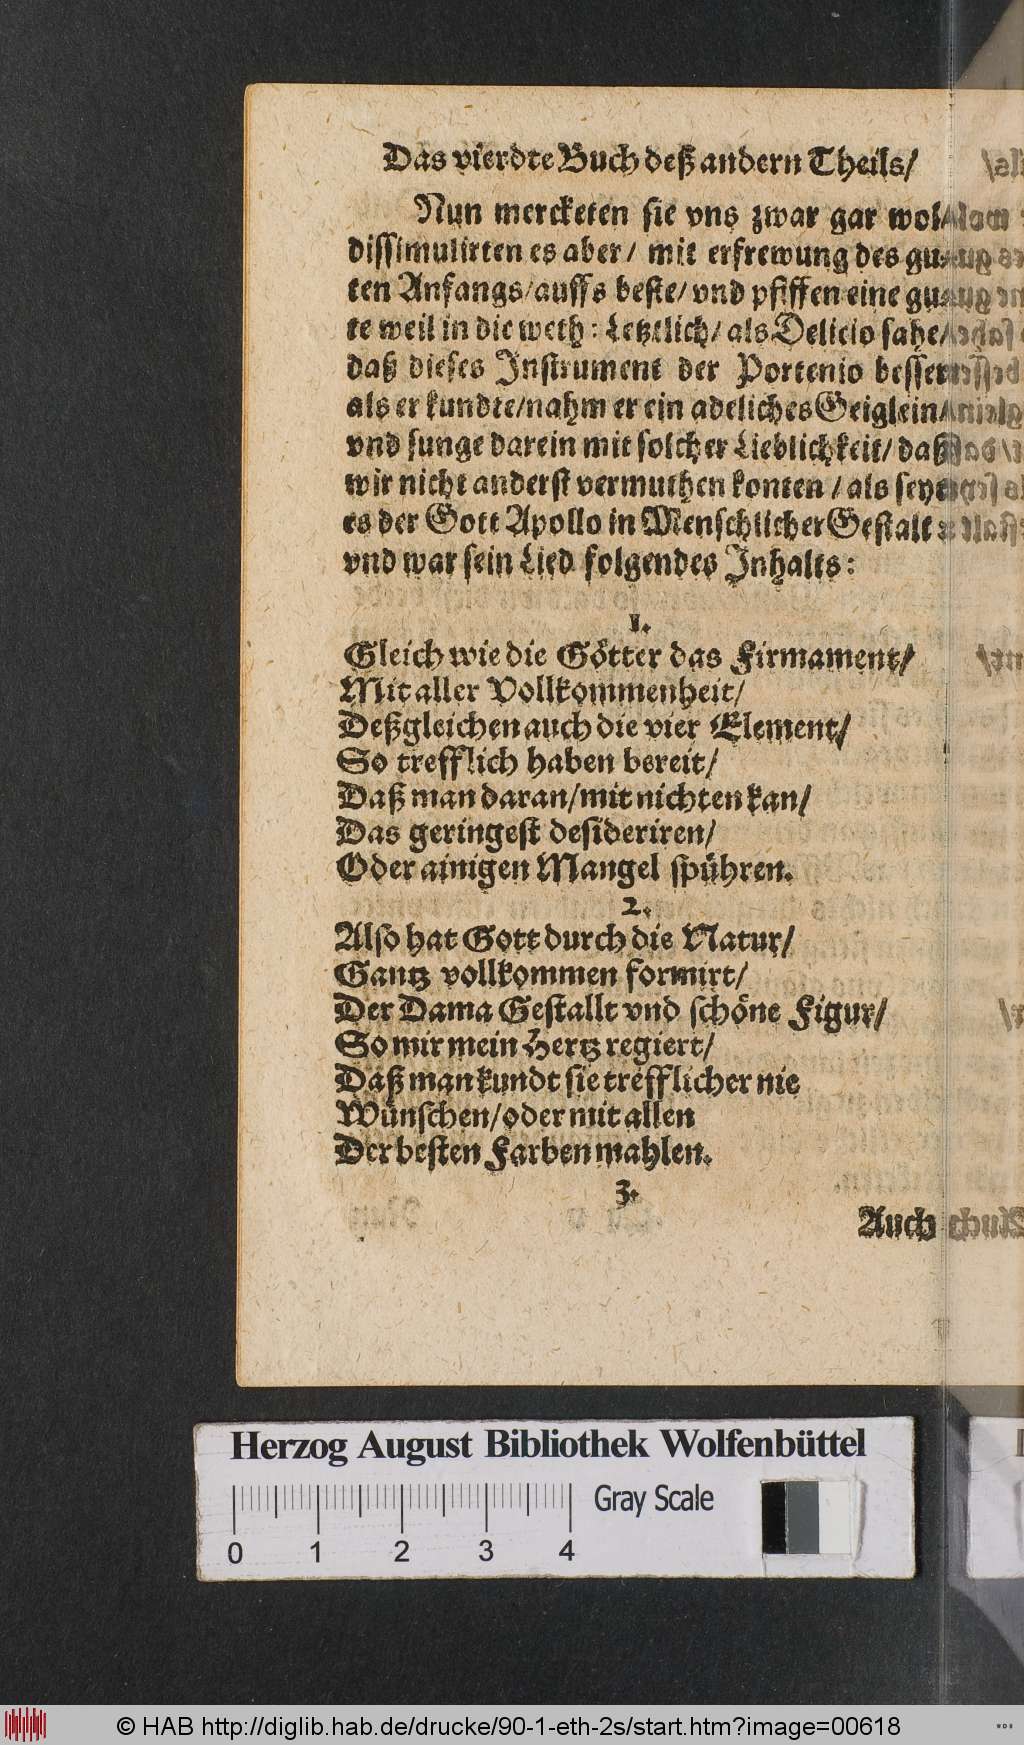 Das vierdte Buch deß andern Theils/
Nun mercketen sie vns zwar gar wol/
dissimulirten es aber/ mit erfrewung des gu-
ten Anfangs/auffs beste/vnd pfiffen eine gu-
te weil in die weth: Letztlich/ als Delicio sahe/
daß dieses Instrument der Portenio besser
als er kundte/nahm er ein adeliches Geiglein/
vnd sunge darein mit solcher Lieblichkeit/ daß
wir nicht anderst vermuthen konten / als seye
es der Gott Apollo in Menschlicher Gestalt :
vnd war sein Lied folgendes Inhalts:
1.
Gleich wie die Götter das Firmament/
Mit aller Vollkommenheit/
Deßgleichen auch die vier Element/
So trefflich haben bereit/
Daß man daran/mit nichten kan/
Das geringest desideriren/
Oder ainigen Mangel spühren.
2.
Also hat Gott durch die Natur/
Gantz vollkommen formirt/
Der Dama Gestallt vnd schöne Figur/
So mir mein Hertz regiert/
Daß man kundt sie trefflicher nie
Wünschen/oder mit allen
Der besten Farben mahlen.
3.
Auch
Herzog August Bibliothek Wolfenbüttel
Gray Scale
0 1 2 3 4
© HAB http://diglib.hab.de/drucke/90-1-eth-2s/start.htm?image=00618